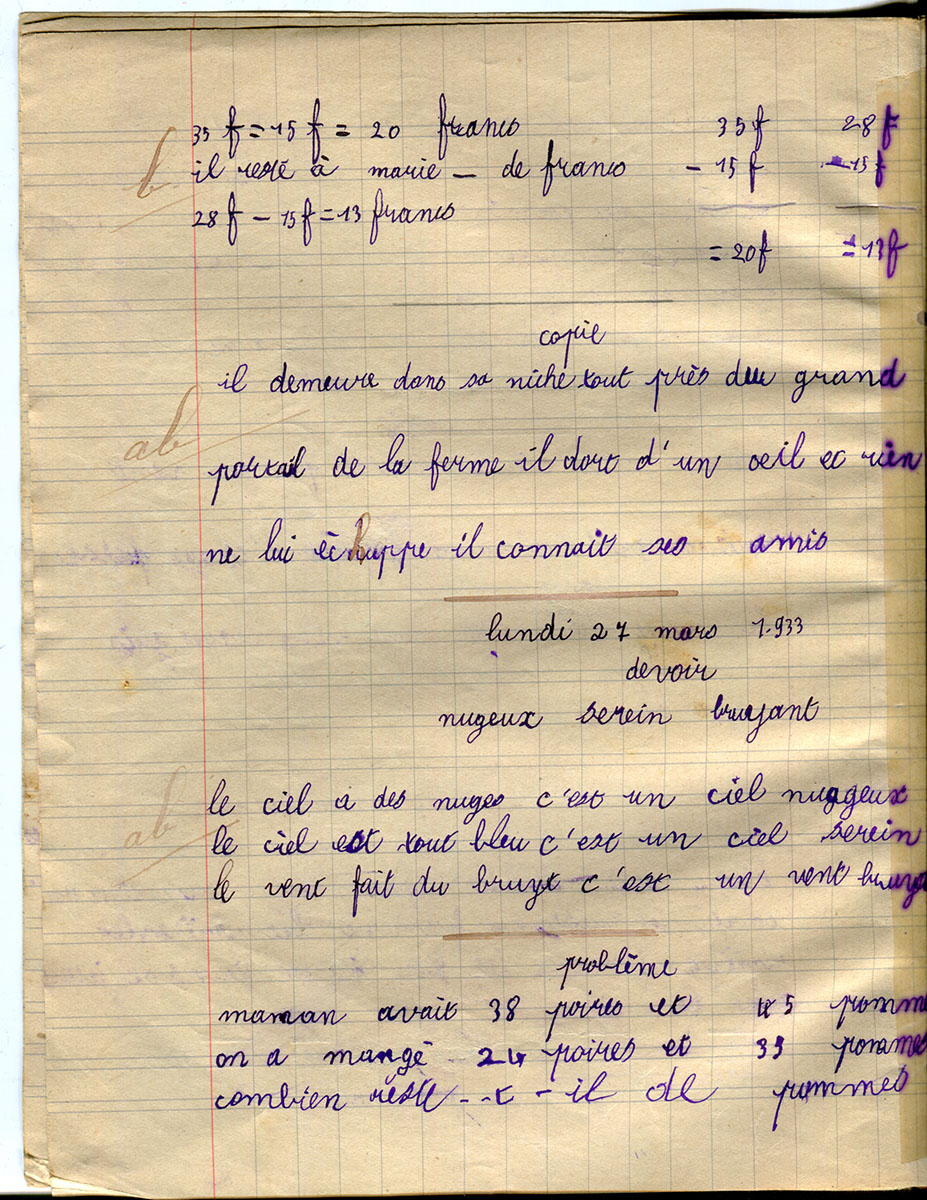 35 f = 15 f = 20 francs 35 f 28 f
b il reste à marie - de francs - 15 f - 15 f
28 f - 15 f = 13 francs
= 20 f = 13 f
copie
il demeure dans sa niche tout près du grand
ab
portail de la ferme il dort d'un oeil et rien
ne lui échappe il connait ses amis
lundi 27 mars 1.933
devoir
nugeux serein bruyant
le ciel a des nuges c'est un ciel nuageux
ab le ciel est tout bleu c'est un ciel serein
le vent fait du bruyt c'est un vent bruya
problême
maman avait 38 poires et 45 pomme
on a mangé 24 poires et 33 pommes
combien reste - t - il de pommes